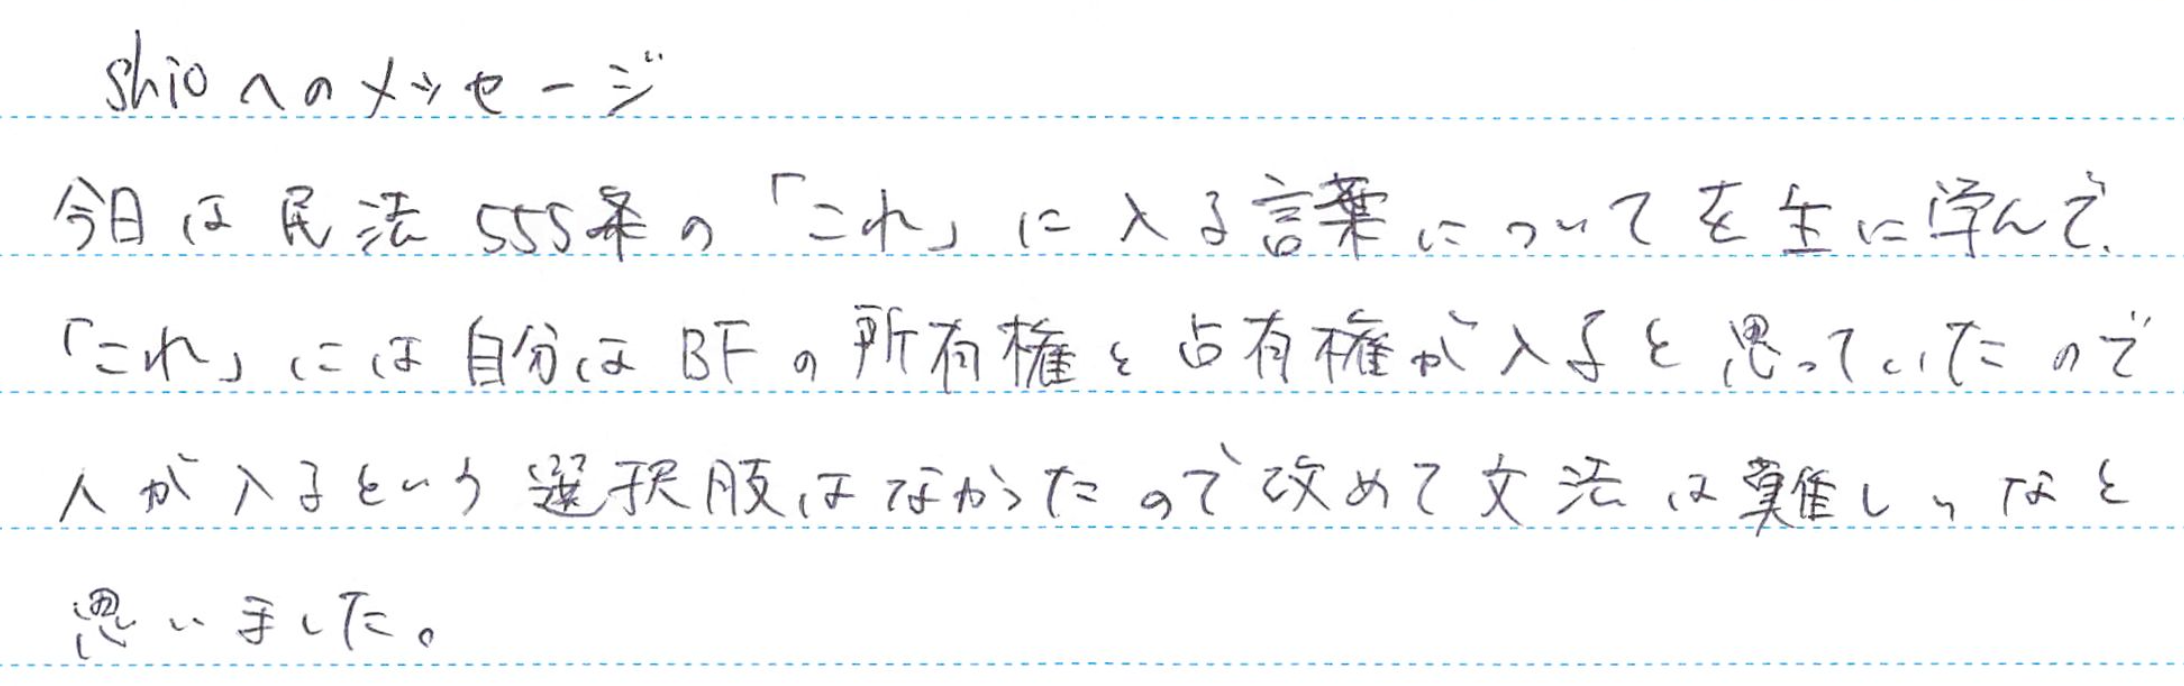 shioへのメッセージ
今日は民法555条の「これ」に入る言葉についてを主に学んで、
「これ」には自分はBFの所有権と占有権が入ると思っていたので
人が入るという選択肢はなかったので改めて文法は難しいなと
思いました。